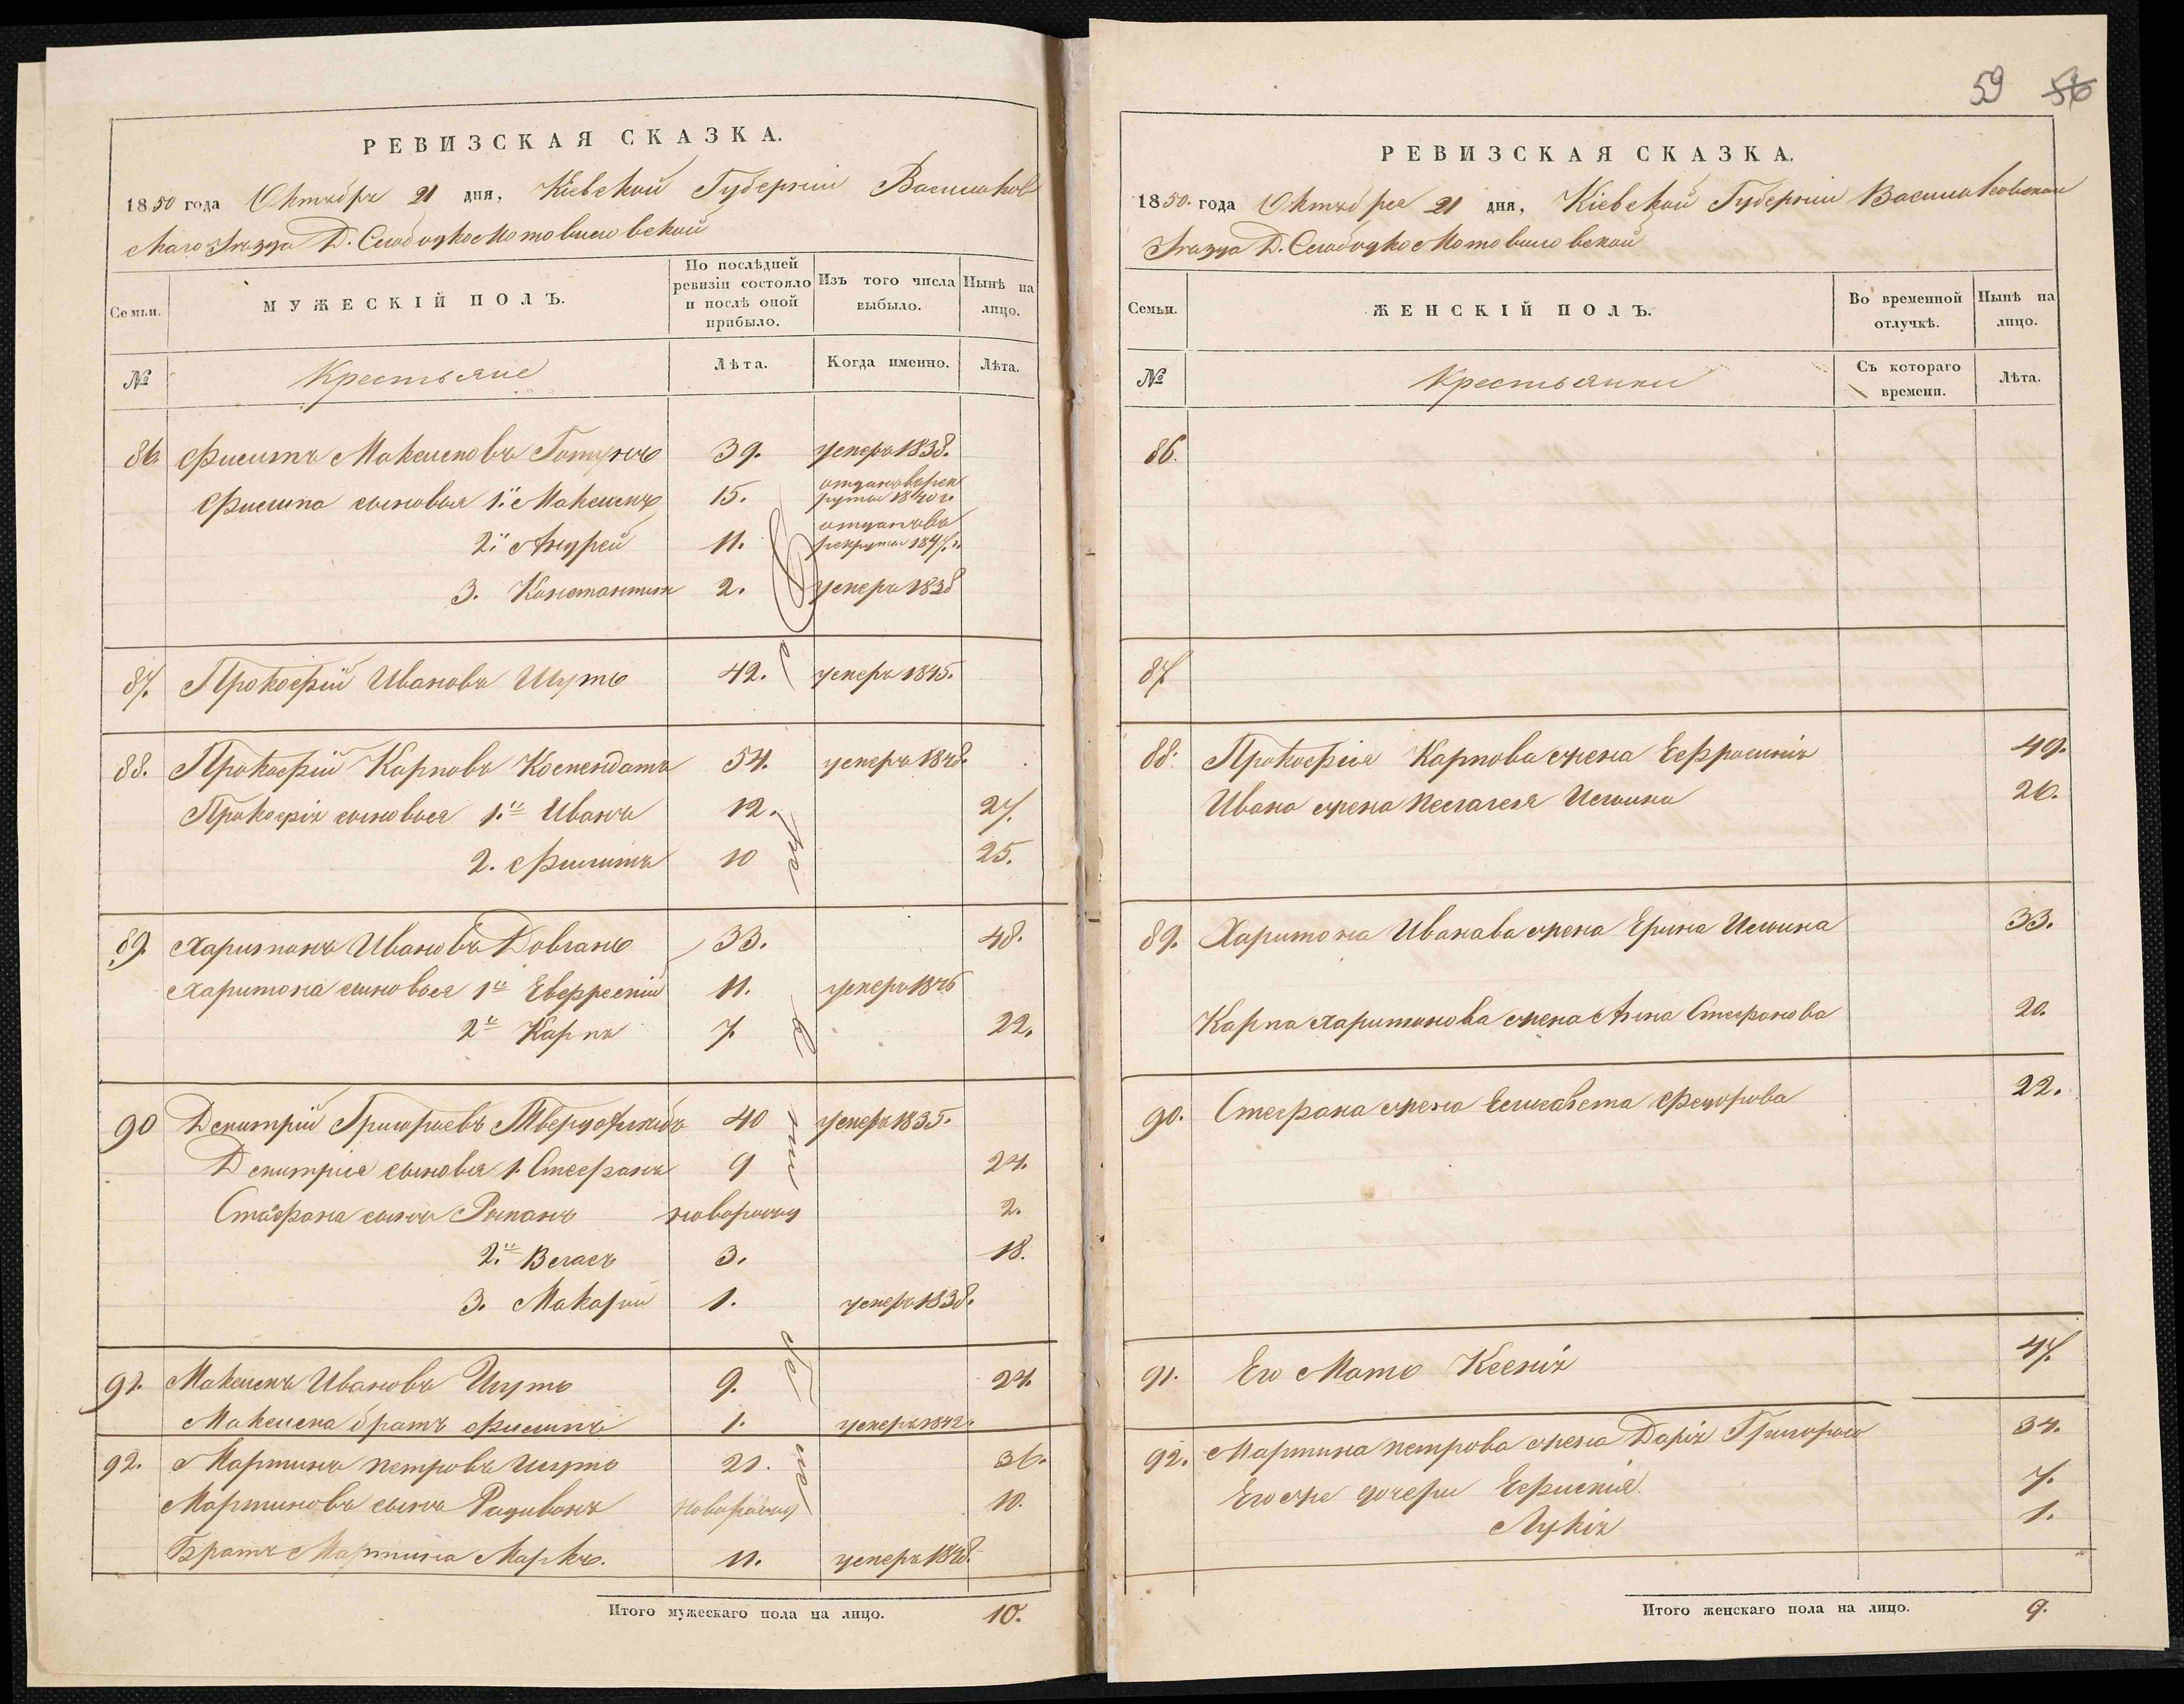 59 56
РЕВИЗСКАЯ СКАЗКА.
1850 года Октября 21 дня, Кіевской Губерніи Васильков
скаго Уезда Д. Слободко Мотовиловской
Семьи. МУЖЕСКІЙ ПОЛЪ. По послѣдней ревизіи состояло и послѣ оной прибыло. Изъ того числа выбыло. Нынѣ на лицо.
№ Крестьяне Лѣта. Когда именно. Лѣта.
86 Филипъ Максимовъ 39. умеръ 1838.
Филипа сыновья 1й Максимъ 15. отданъ в рек
руты 1840 г.
2й Андрей 11. отданъ въ
рекруты 1847 г.
3. Константинъ 2. умеръ 1838
87. Прокофій Ивановъ Шуть 42. умеръ 1845.
88. Прокофій Карповъ 54. умеръ 1848.
Прокофія сыновья 1й Иванъ 12. 27.
2. Филипъ 10 25.
89. Харитонъ Ивановъ Довгань 33. 48.
Харитона сыновья 1й 11. умеръ 1846
2й Карпъ 7. 22.
90 Дмитрій Григорьевъ 40 умеръ 1835.
Дмитрія сыновья 1. Стефанъ 9 24.
Стефана сынъ Романъ новорожд 2.
2й Власъ 3. 18.
3. Макарій 1. умеръ 1838.
91. Максимъ Ивановъ Шуть 9. 24.
Максима братъ Филипъ 1. умеръ 1842.
92. Мартинъ Петровъ Шуть 21. 36.
Мартиновъ сынъ Радивонъ новорожд 10.
Братъ Мартина Марко. 11. умеръ 1848.
Итого мужескаго пола на лицо. 10.
РЕВИЗСКАЯ СКАЗКА.
1850. года Октября 21 дня, Кіевской Губерніи Васильковскаго
Уезда Д. Слободко Мотовиловской
Семьи. ЖЕНСКІЙ ПОЛЪ. Во временной отлучкѣ. Нынѣ на лицо.
№ Крестьянки Съ котораго времени. Лѣта.
86.
87
88. Прокофія Карпова жена Ефросинія 49.
Ивана жена Пелагея Ильина 26.
89. Харитона Иванава жена Ерина Ильина 33.
Карпа Харитонова жена Анна Стефанова 20.
90. Стефана жена Елисавета Федорова 22.
91. Его Мать Ксенія 47.
92. Мартина Петрова жена Дарія 34.
Его же дочери Ефимія 7.
Лукія 1.
Итого женскаго пола на лицо. 9.